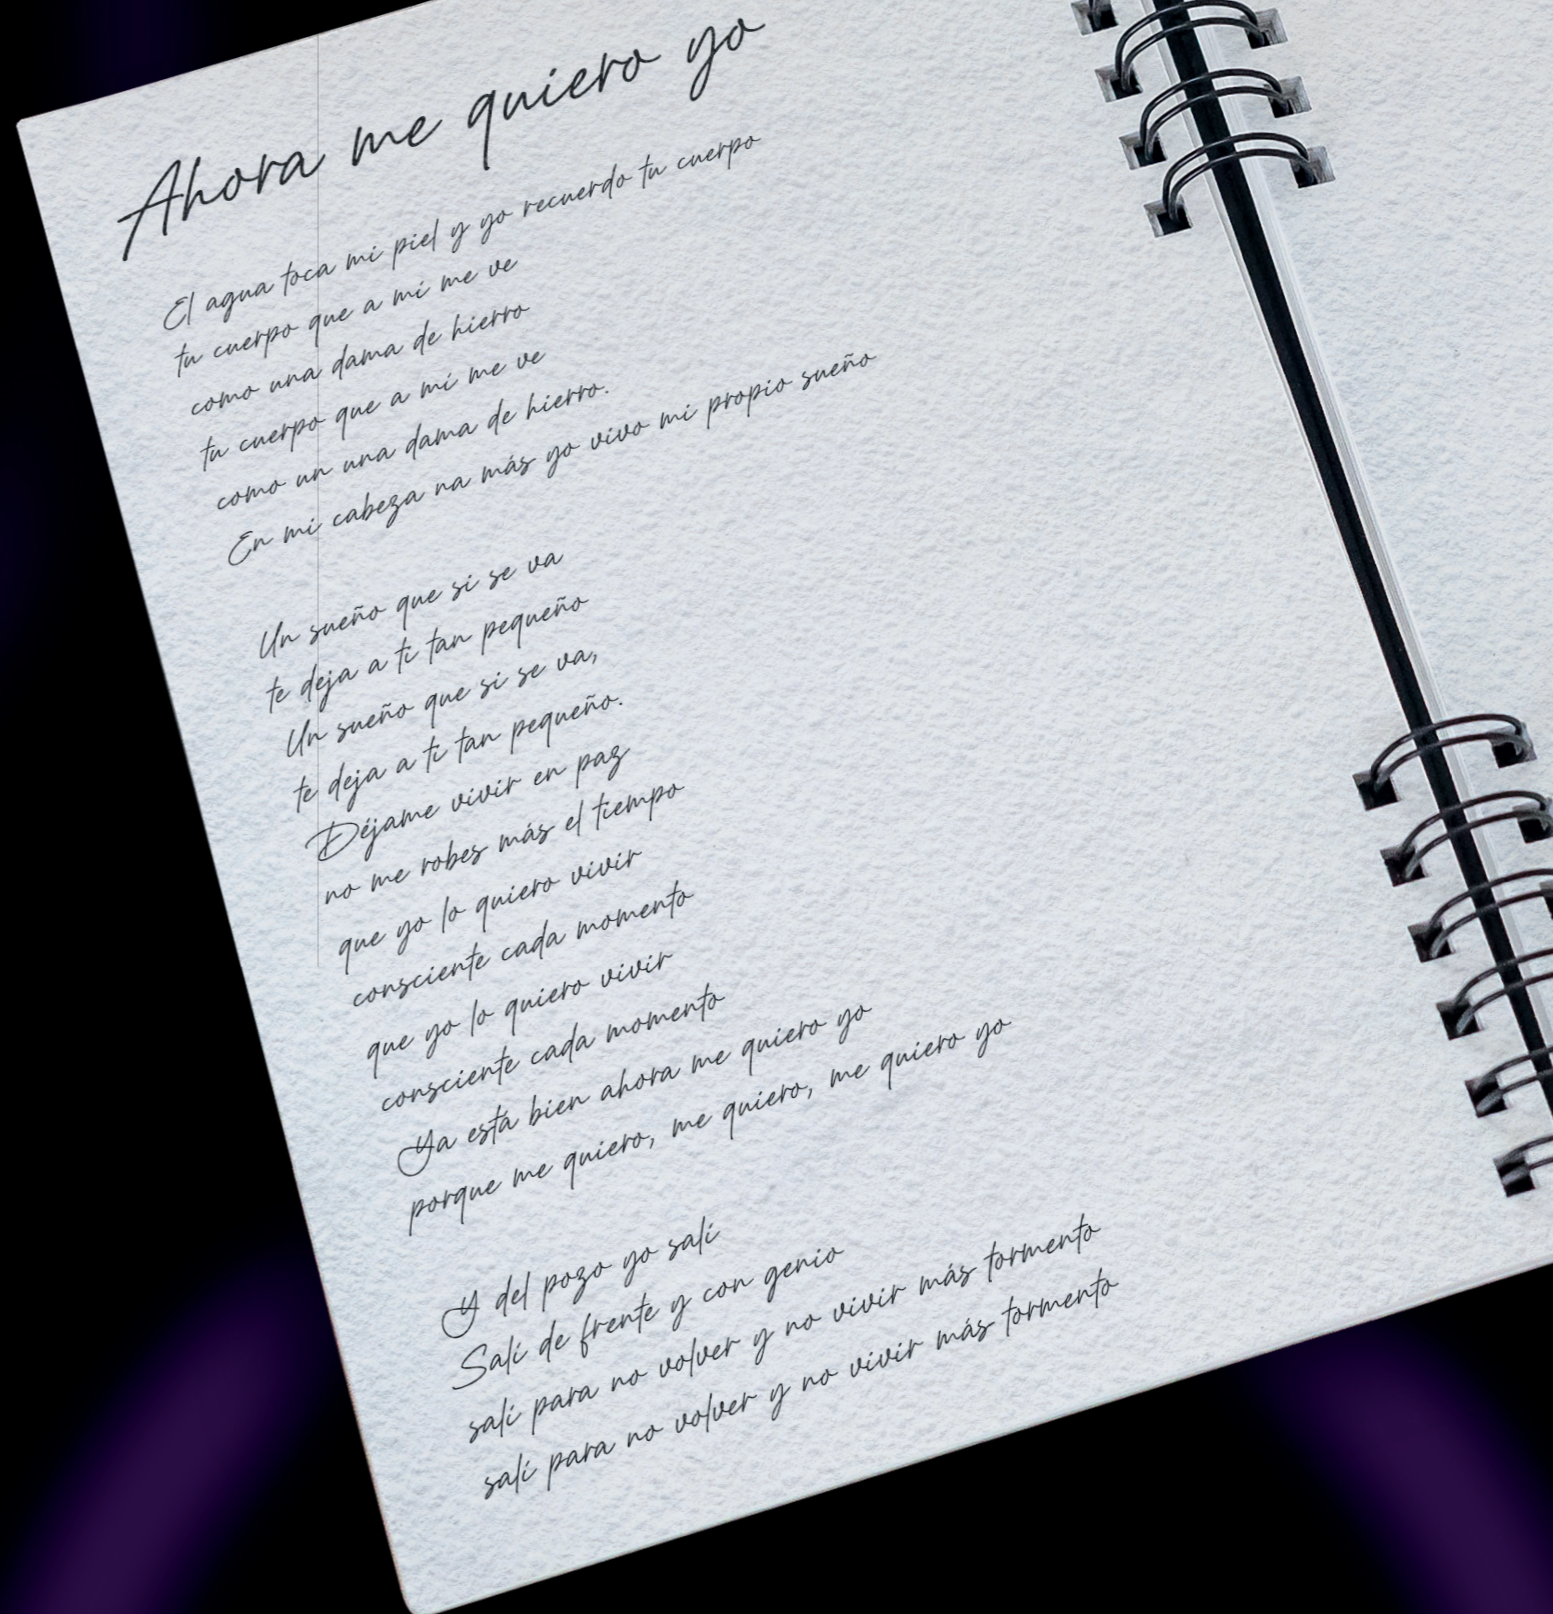 Ahora me quiero yo
El agua toca mi piel y yo recuerdo tu cuerpo
tu cuerpo que a mí me ve
como una dama de hierro
tu cuerpo que a mí me ve
como un una dama de hierro.
En mi cabeza na más yo vivo mi propio sueño
Un sueño que si se va
te deja a ti tan pequeño
Un sueño que si se va,
te deja a ti tan pequeño.
Déjame vivir en paz
no me robes más el tiempo
que yo lo quiero vivir
consciente cada momento
que yo lo quiero vivir
consciente cada momento
Ya está bien ahora me quiero yo
porque me quiero, me quiero, me quiero yo
Y del pozo yo salí
Salí de frente y con genio
salí para no volver y no vivir más tormento
salí para no volver y no vivir más tormento